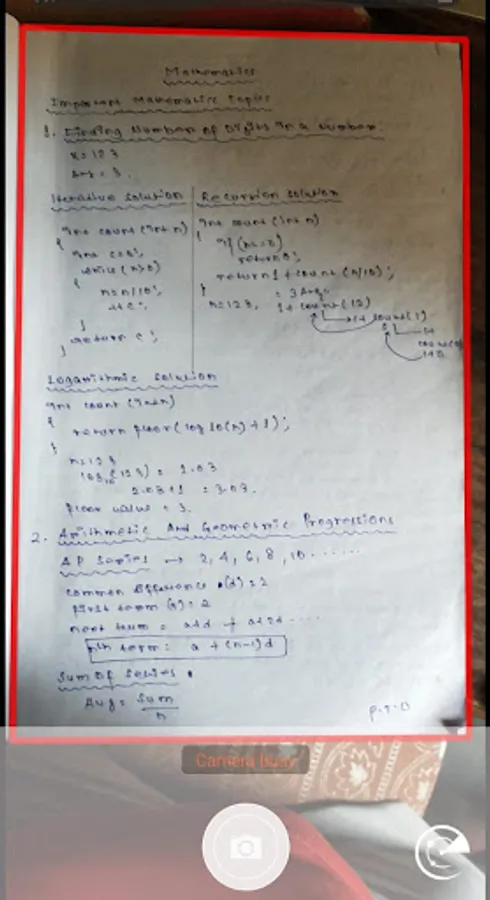 Mathematics
Important Mathematics Topics
1. Finding Number of Digits in a Number:
n = 123
Ans = 3.
Iterative solution
int count (int n)
{
int c=0;
while (n>0)
{
n=n/10;
++c;
}
return c;
}
Recursion solution
int count (int n)
{
if (n==0)
return 0;
return 1+count (n/10);
}
= 3 Ans
n=123, 1+count(12)
1+count(1)
1+
count(0)
1+0
Logarithmic solution
int count (int n)
{
return floor(log10(n)+1);
}
n=123
log10(123) = 2.03
2.03+1 = 3.03.
floor value = 3.
2. Arithmetic And Geometric Progressions
AP Series → 2, 4, 6, 8, 10 .......
common difference (d) = 2
first term (a) = 2
next term = a+d
nth term = a + (n-1)d
Sum of Series
Avg = Sum
n
P.T.O
Camera busy